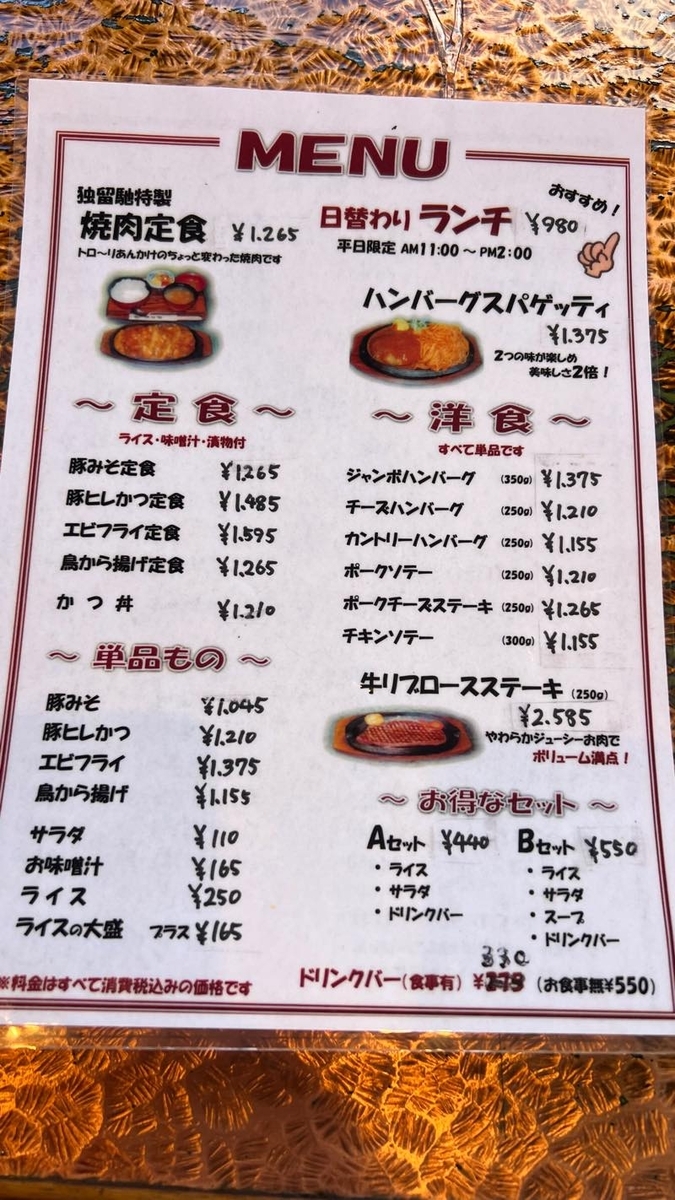 MENU
独留馳特製
焼肉定食 ¥1.265
トロ〜リあんかけのちょっと変わった焼肉です
おすすめ！
日替わりランチ ¥980
平日限定 AM11:00 〜 PM2:00
ハンバーグスパゲッティ
¥1.375
2つの味が楽しめ
美味しさ2倍！
〜 定食 〜
ライス・味噌汁・漬物付
豚みそ定食 ¥1265
豚ヒレかつ定食 ¥1.485
エビフライ定食 ¥1.595
鳥から揚げ定食 ¥1.265
かつ丼 ¥1.210
〜 単品もの 〜
豚みそ ¥1.045
豚ヒレかつ ¥1.210
エビフライ ¥1.375
鳥から揚げ ¥1.155
サラダ ¥110
お味噌汁 ¥165
ライス ¥250
ライスの大盛 プラス ¥165
※料金はすべて消費税込みの価格です
〜 洋食 〜
すべて単品です
ジャンボハンバーグ (350g) ¥1.375
チーズハンバーグ (250g) ¥1.210
カントリーハンバーグ (250g) ¥1.155
ポークソテー (250g) ¥1.210
ポークチーズステーキ (250g) ¥1.265
チキンソテー (300g) ¥1.155
牛リブロースステーキ (250g)
¥2.585
やわらかジューシーお肉で
ボリューム満点！
〜 お得なセット 〜
Aセット ¥440
・ライス
・サラダ
・ドリンクバー
Bセット ¥550
・ライス
・サラダ
・スープ
・ドリンクバー
330
ドリンクバー(食事有) ¥275 (お食事無¥550)